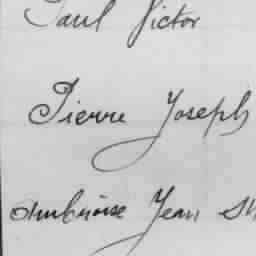 Paul Victor
Pierre Joseph
Ambroise Jean